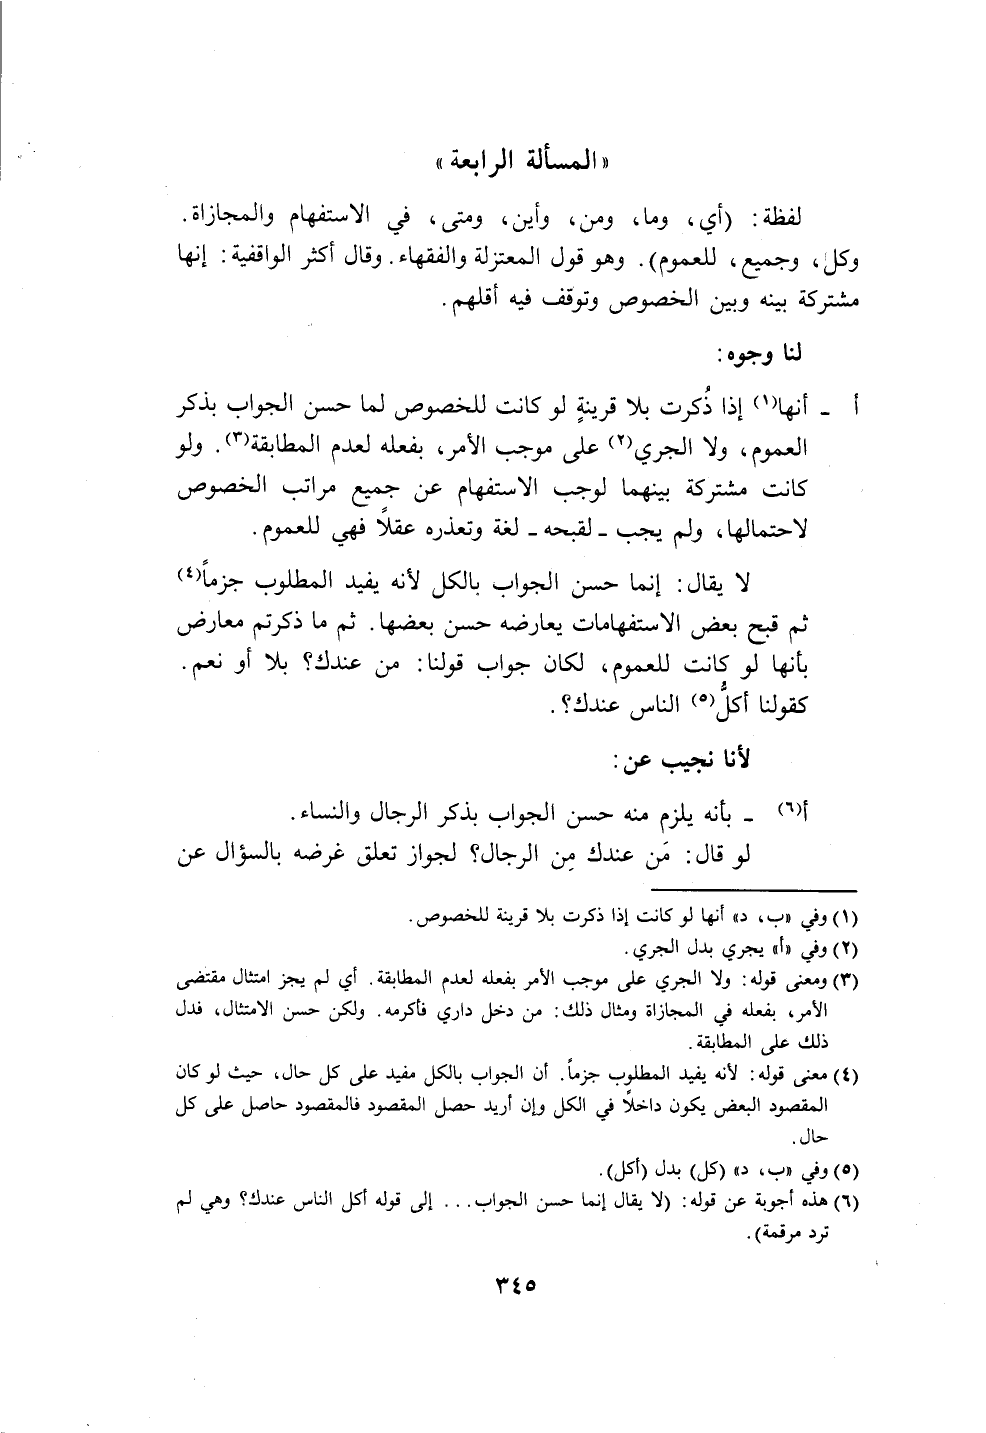 «المسألة الرابعة»
لفظة: (أي، وما، ومن، وأين، ومتى، في الاستفهام والمجازاة.
وكل، وجميع، للعموم). وهو قول المعتزلة والفقهاء. وقال أكثر الواقفية: إنها
مشتركة بينه وبين الخصوص وتوقف فيه أقلهم.
لنا وجوه:
أ - أنها(١) إذا ذُكرت بلا قرينةٍ لو كانت للخصوص لما حسن الجواب بذكر
العموم، ولا الجري(٢) على موجب الأمر، بفعله لعدم المطابقة(٣). ولو
كانت مشتركة بينهما لوجب الاستفهام عن جميع مراتب الخصوص
لاحتمالها، ولم يجب - لقبحه - لغة وتعذره عقلاً فهي للعموم.
لا يقال: إنما حسن الجواب بالكل لأنه يفيد المطلوب جزماً(٤)
ثم قبح بعض الاستفهامات يعارضه حسن بعضها. ثم ما ذكرتم معارض
بأنها لو كانت للعموم، لكان جواب قولنا: من عندك؟ بلا أو نعم.
كقولنا أكلُّ(٥) الناس عندك؟.
لأنا نجيب عن:
أ(٦) - بأنه يلزم منه حسن الجواب بذكر الرجال والنساء.
لو قال: مَن عندك مِن الرجال؟ لجواز تعلق غرضه بالسؤال عن
(١) وفي «ب، د» أنها لو كانت إذا ذكرت بلا قرينة للخصوص.
(٢) وفي «أ» يجري بدل الجري.
(٣) ومعنى قوله: ولا الجري على موجب الأمر بفعله لعدم المطابقة. أي لم يجز امتثال مقتضى
الأمر، بفعله في المجازاة ومثال ذلك: من دخل داري فأكرمه. ولكن حسن الامتثال، فدل
ذلك على المطابقة.
(٤) معنى قوله: لأنه يفيد المطلوب جزماً. أن الجواب بالكل مفيد على كل حال، حيث لو كان
المقصود البعض يكون داخلاً في الكل وإن أريد حصل المقصود فالمقصود حاصل على كل
حال.
(٥) وفي «ب، د» (كل) بدل (أكل).
(٦) هذه أجوبة عن قوله: (لا يقال إنما حسن الجواب... إلى قوله أكل الناس عندك؟ وهي لم
ترد مرقمة).
٣٤٥